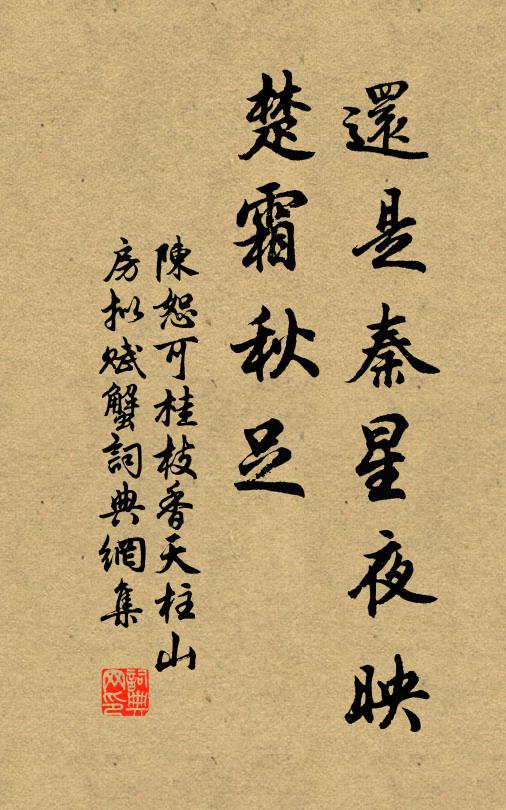 還是秦星夜映
楚霜秋足
陳恕可桂枝香天柱山
房拟賦蟹詞典網集
詞典
网印